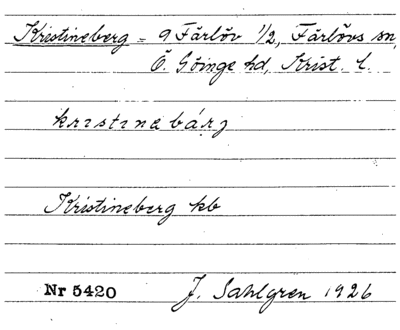 Kristineberg = 9 Färlöv 1/2, Färlövs sn,
Ö. Göinge hd, Krist. l.
kristinabárj
Kristineberg kb
Nr 5420 J. Sahlgren 1926